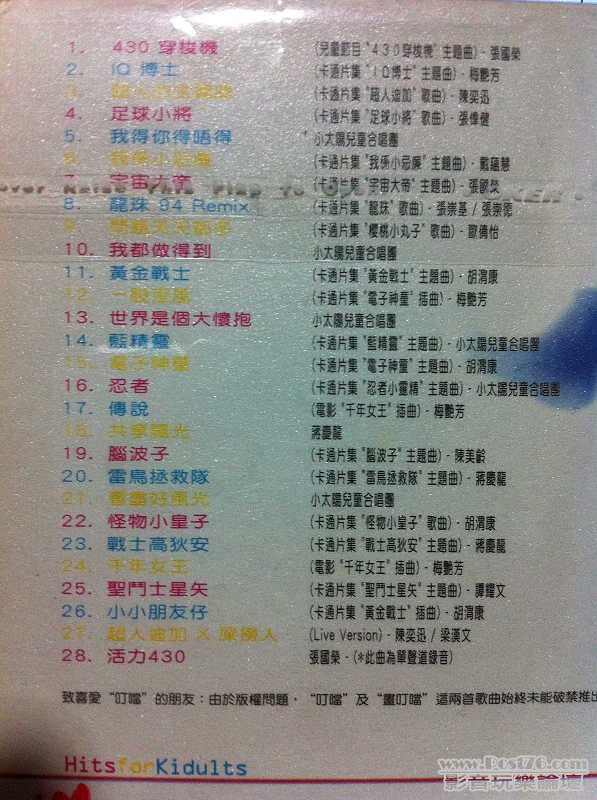 1. 430 穿梭機 (兒童節目"430穿梭機"主題曲) - 張國榮
2. IQ 博士 (卡通片集"IQ博士"主題曲) - 梅艷芳
3. (卡通片集"超人迪加"歌曲) - 陳奕迅
4. 足球小將 (卡通片集"足球小將"歌曲) - 張偉健
5. 我得你得唔得 小太陽兒童合唱團
6. 我係小忌廉 (卡通片集"我係小忌廉"主題曲) - 戴蘊慧
over Noise This Flap To
7. 宇宙大帝 (卡通片集"宇宙大帝"主題曲) -
8. 龍珠 94 Remix (卡通片集"龍珠"歌曲) - 張崇基 / 張崇德
9. (卡通片集"櫻桃小丸子"歌曲) - 歐倩怡
10. 我都做得到 小太陽兒童合唱團
11. 黃金戰士 (卡通片集"黃金戰士"主題曲) - 胡渭康
12. (卡通片集"電子神童"插曲) - 梅艷芳
13. 世界是個大懷抱 小太陽兒童合唱團
14. 藍精靈 (卡通片集"藍精靈"主題曲) - 小太陽兒童合唱團
15. 電子神童 (卡通片集"電子神童"主題曲) - 胡渭康
16. 忍者 (卡通片集"忍者小靈精"主題曲) - 小太陽兒童合唱團
17. 傳說 (電影"千年女王"插曲) - 梅艷芳
18. 共享陽光 蔣慶龍
19. 腦波子 (卡通片集"腦波子"主題曲) - 陳美齡
20. 雷鳥拯救隊 (卡通片集"雷鳥拯救隊"主題曲) - 蔣慶龍
21. 小太陽兒童合唱團
22. 怪物小皇子 (卡通片集"怪物小皇子"歌曲) - 胡渭康
23. 戰士高狄安 (卡通片集"戰士高狄安"主題曲) - 蔣慶龍
24. 千年女王 (電影"千年女王"插曲) - 梅艷芳
25. 聖鬥士星矢 (卡通片集"聖鬥士星矢"主題曲) - 譚耀文
26. 小小朋友仔 (卡通片集"黃金戰士"插曲) - 胡渭康
27. 超人迪加 X 人 (Live Version) - 陳奕迅 / 梁漢文
28. 活力430 張國榮 - (*此曲為單聲道錄音)
致喜愛"叮噹"的朋友：由於版權問題，"叮噹"及"畫叮噹"這兩首歌曲始終未能破禁推出
HitsforKidults
www.Post76.com
影音玩樂論壇